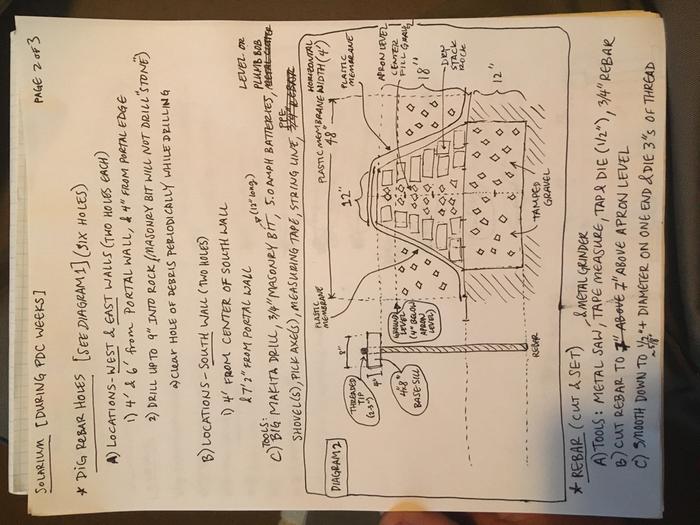 SOLARIUM [DURING PDC WEEKS]
PAGE 2 OF 3
* DIG REBAR HOLES [SEE DIAGRAM 1] (SIX HOLES)
A) LOCATIONS - WEST & EAST WALLS (TWO HOLES EACH)
1) 4' & 6' from PORTAL WALL, & 4" FROM PORTAL EDGE
2) DRILL UP TO 9" INTO ROCK (MASONRY BIT WILL NOT DRILL "STONE")
a) CLEAR HOLE OF DEBRIS PERIODICALLY WHILE DRILLING
B) LOCATIONS - SOUTH WALL (TWO HOLES)
1) 4' FROM CENTER OF SOUTH WALL
& 7' 2" FROM PORTAL WALL
TOOLS:
(12" long)
LEVEL OR
C) BIG MAKITA DRILL, 3/4" MASONRY BIT, 5.0 AMPH BATTERIES, PLUMB BOB
SHOVEL(S), PICK AXE(S), MEASURING TAPE, STRING LINE, PPE
DIAGRAM 2
PLASTIC MEMBRANE
PLASTIC MEMBRANE WIDTH (4')
48"
HORIZONTAL
PLASTIC MEMBRANE
APRON LEVEL
CENTER FILL GRAVEL
18"
DRY STACK ROCK
12"
12"
8"
THREADED TIP (2-3")
4"
4"x8" BASE-SILL
GROUND LEVEL (4" BELOW APRON LEVEL)
REBAR
TAMPED GRAVEL
* REBAR (CUT & SET) & METAL GRINDER
A) TOOLS: METAL SAW, TAPE MEASURE, TAP & DIE (1/2"), 3/4" REBAR
B) CUT REBAR TO 7" ABOVE APRON LEVEL
C) SMOOTH DOWN TO 1/2"+ DIAMETER ON ONE END & DIE 3"s OF THREAD
~5/8"